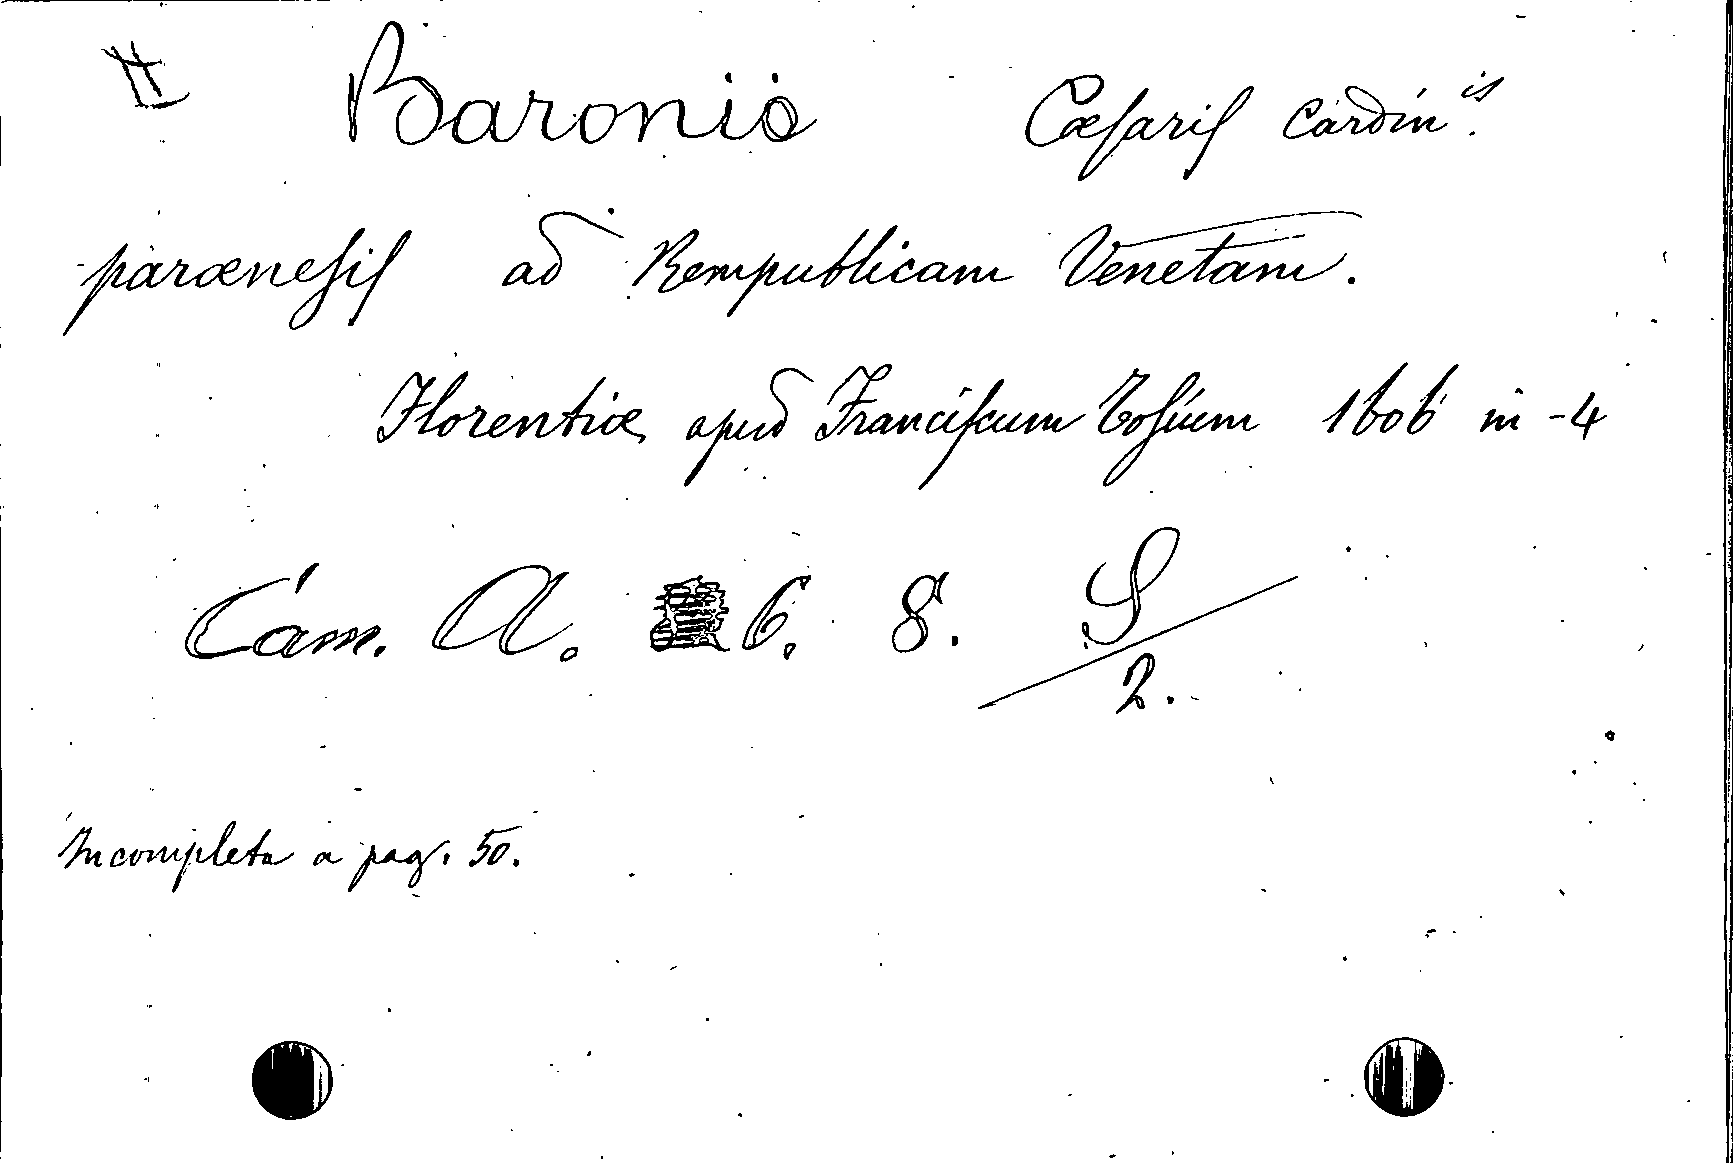 # Baronio Cæsaris Cardin.is
parænesis ad Rempublicam Venetam.
Florentiæ apud Franciscum Tosium 1606 in-4
Cam. A. 6. 8. S/2.
Incompleta a pag. 50.